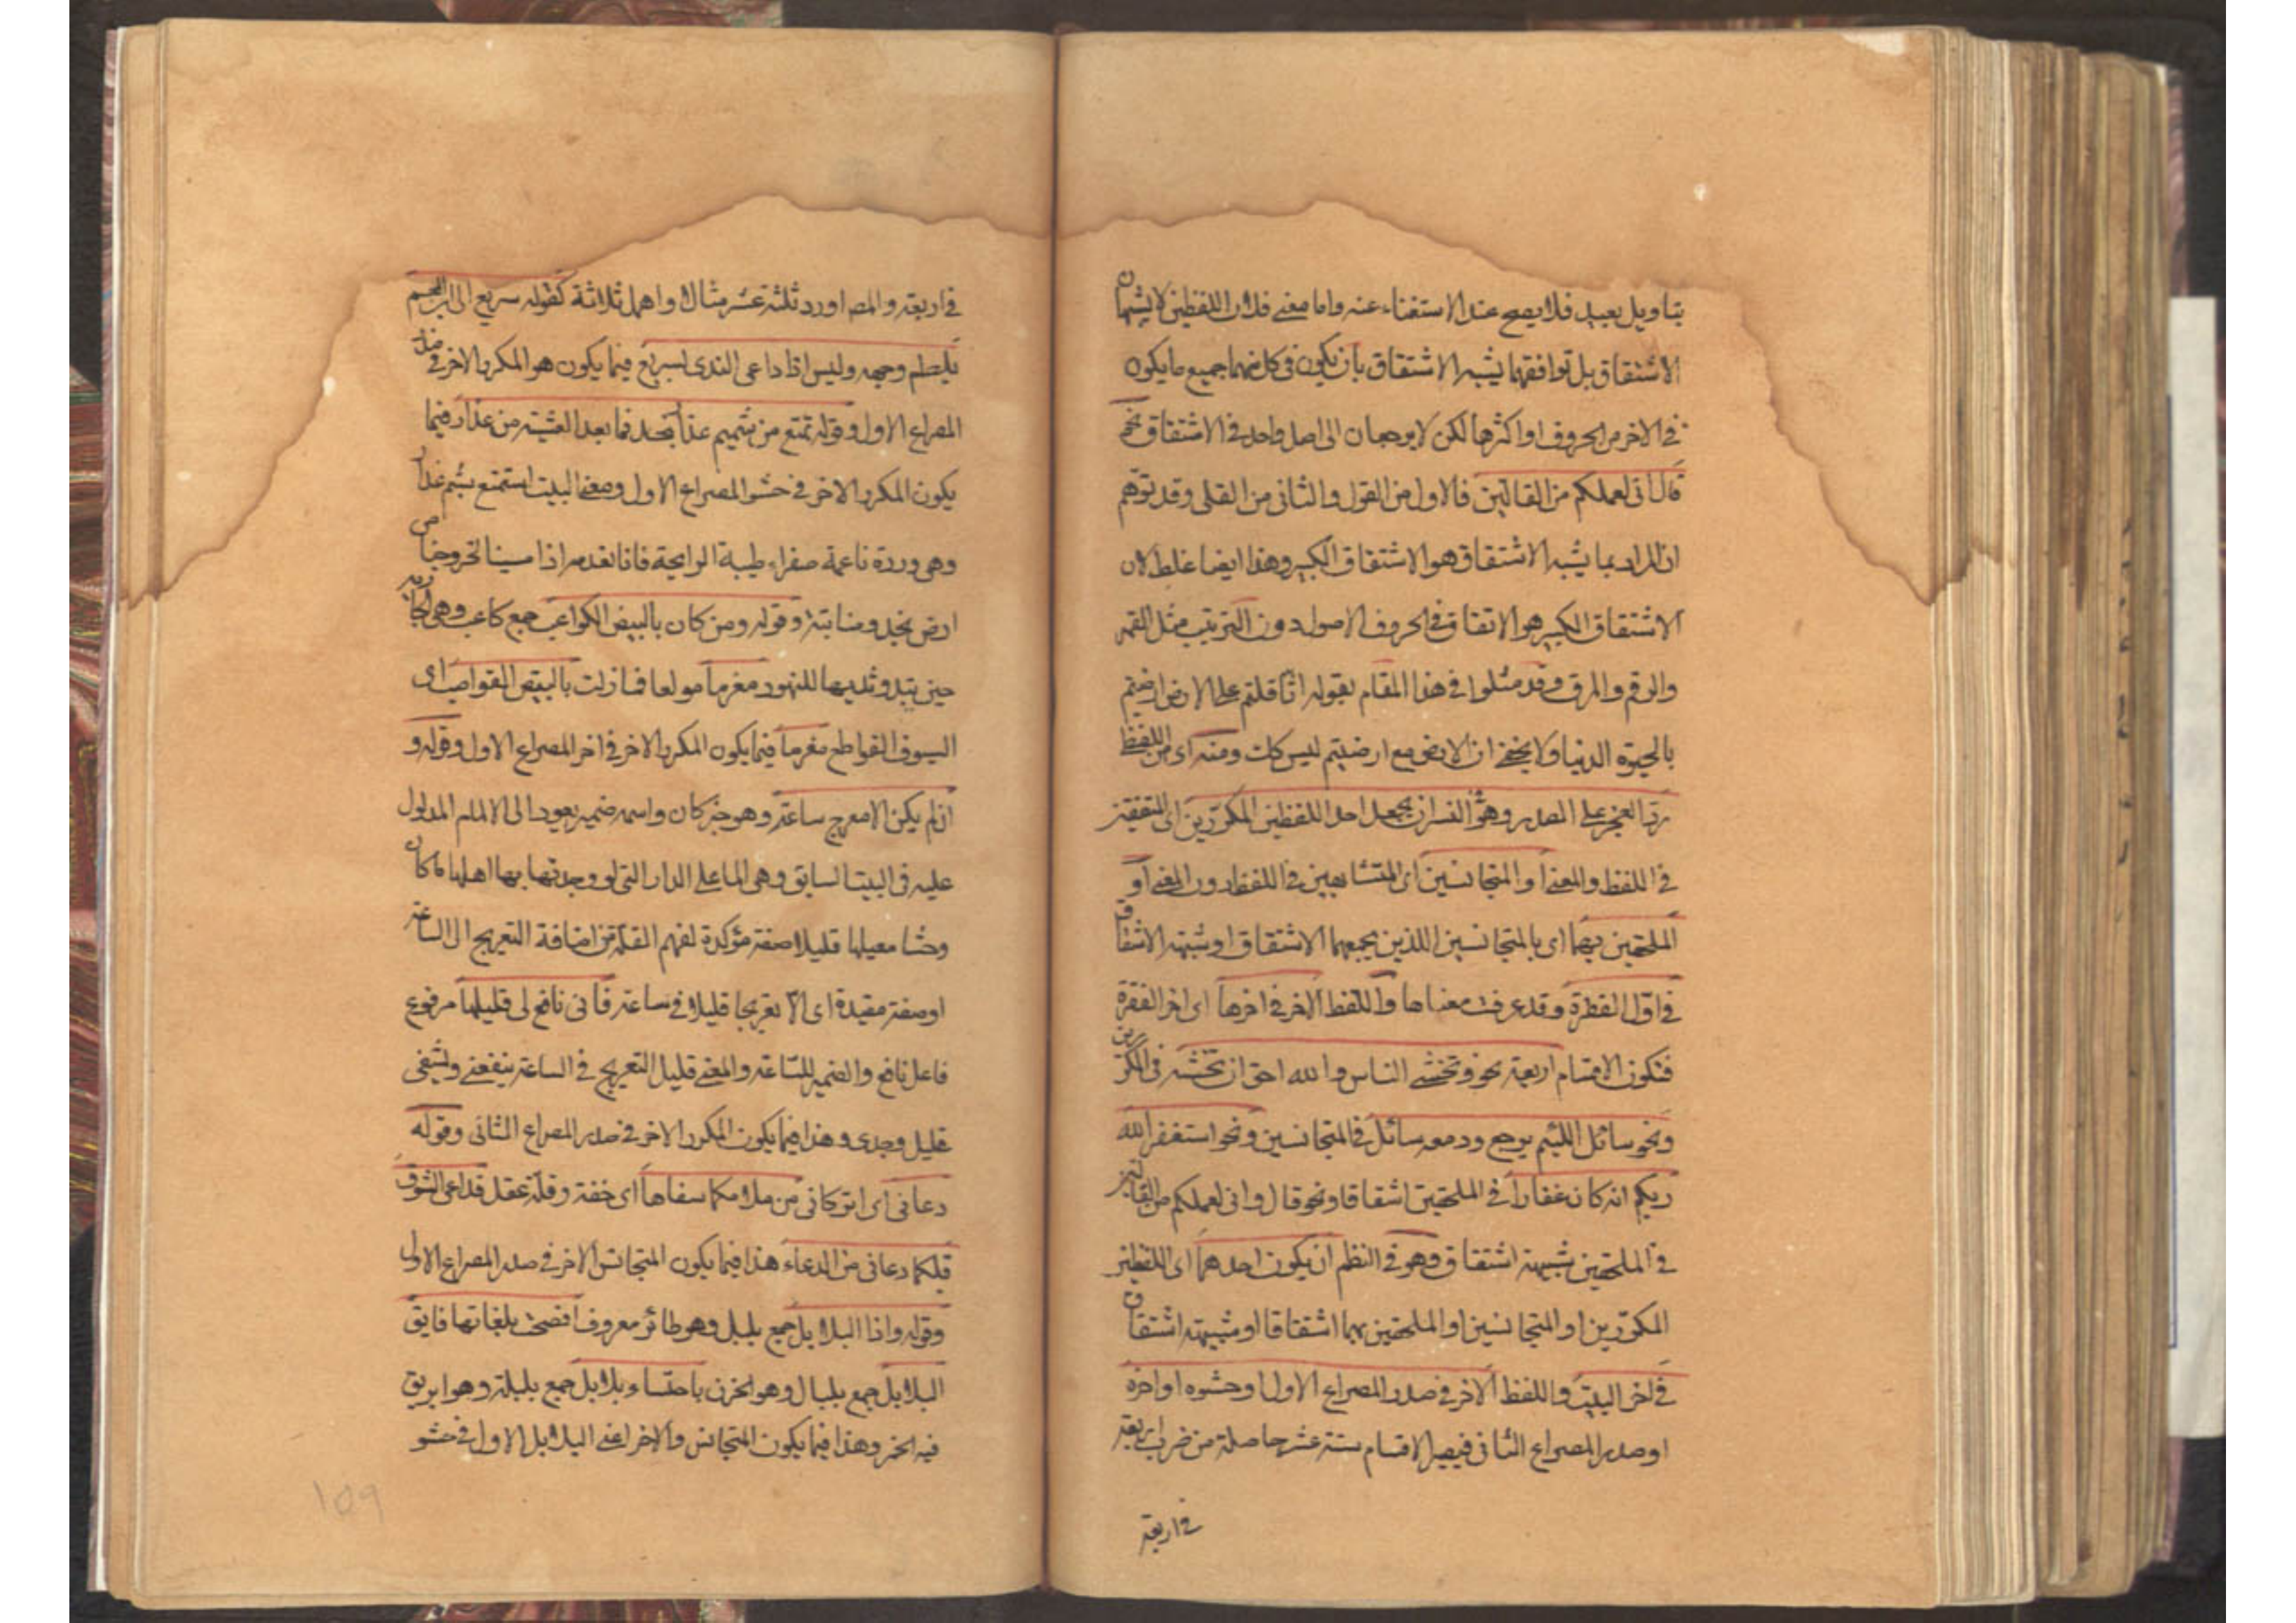 بتاويل بعيد فلا يصح عند الاستغناء عنه واما معنى فلان اللفظين لا يشبهان
الاشتقاق بل توافقهما يشبه الاشتقاق بان يكون فى كل منهما جميع ما يكون
فى الاخر من الحروف او اكثرها لكن لا يرجعان الى اصل واحد فى الاشتقاق نحو
قال انى لعملكم من القالين فالاول من القول والثانى من القلى وقد توهم
ان المراد بما يشبه الاشتقاق هو الاشتقاق الكبير وهذا ايضا غلط لان
الاشتقاق الكبير هو الاتفاق فى الحروف الاصول دون الترتيب مثل القمر
والرقم والمرق وقد مثلوا فى هذا المقام بقوله اثاقلتم على الارض ارضيتم
بالحيوة الدنيا ولا يخفى ان الارض مع ارضيتم ليس كك ومنه اى من اللفظى
رد العجز على الصدر وهو فى النثر ان يجعل احد اللفظين المكررين اى المتفقين
فى اللفظ والمعنى او المتجانسين اى المتشابهين فى اللفظ دون المعنى او
الملحقين بهما اى بالمتجانسين اللذين يجمعهما الاشتقاق او شبهة الاشتقاق
فى اول الفقرة وقد عرفت معناها واللفظ الاخر فى اخرها اى اخر الفقرة
فتكون الاقسام اربعة نحو وتخشى الناس والله احق ان تخشه فى المكررين
ونحو سائل اللئيم يرجع ودمعه سائل فى المتجانسين ونحو استغفر الله
ربكم انه كان غفارا فى الملحقين اشقاقا ونحو قال وانى لعملكم من القالين
فى الملحقين بشبهة اشتقاق وهو فى النظم ان يكون احدهما اى اللفظين
المكررين او المتجانسين او الملحقين بهما اشتقاقا او شبهة اشتقاق
فى اخر البيت واللفظ الاخر فى صدر المصراع الاول او حشوه او اخره
او صدر المصراع الثانى فيصير الاقسام ستة عشر حاصلة من ضرب اربعة
فى اربعة
فى اربعة والمص اورد ثلثة عشر مثالا واهمل ثلاثة كقوله سريع الى ابن العم
يلطم وجهه وليس اذا داعى الندى بسريع فيما يكون هو المكرر الاخر فى صدر
المصراع الاول وقوله تمتع من شميم عذار نجد فما بعد العشية من عذار فيما
يكون المكرر الاخر فى حشو المصراع الاول ومعنى البيت استمتع بشم عذار
وهى وردة ناعمة صفراء طيبة الرايحة فانا نعدمه اذا مسينا لخروجنا من
ارض نجد ومنابته وقوله ومن كان بالبيض الكواعب جمع كاعب وهى الجارية
حين يبدو ثديها للنهود مغرما مولعا فما زلت بالبيض القواضب اى
السيوف القواطع مغرما فيما يكون المكرر الاخر فى اخر المصراع الاول وقوله و
ان لم يكن الا معرج ساعة وهو خبر كان واسمه ضمير يعود الى الالمام المدلول
عليه فى البيت السابق وهى الما على الدار التى لو وجدتها بها اهلها ما كان
وحشا مقيلها قليلا صفة مؤكدة لفهم القلة من اضافة التعريج الى الساعة
او صفة مقيدة اى الا تعريجا قليلا فى ساعة فانى نافع لى قليلها مرفوع
فاعل نافع والضمير للساعة والمعنى قليل التعريج فى الساعة ينفعنى ويشفى
غليل وجدى وهذا فيما يكون المكرر الاخر فى صدر المصراع الثانى وقوله
دعانى اى اتركانى من ملامكما سفاها اى خفة وقلة عقل فداعى الشوق
قبلكما دعانى من الدعاء هذا فيما يكون المتجانس الاخر فى صدر المصراع الاول
وقوله واذا البلابل جمع بلبل وهو طائر معروف افصحت بلغاتها فانف
البلابل جمع بلبال وهو الحزن باحتساء بلابل جمع بلبلة وهو ابريق
فيه الخمر وهذا فيما يكون المتجانس والاخر اعنى البلابل الاول فى حشو
١٥٩